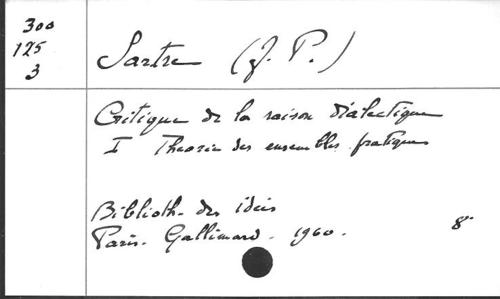 300
125
3
Sartre (J. P.)
Critique de la raison dialectique
I Theorie des ensembles pratiques
Biblioth. des idées
Paris. Gallimard. 1960. 8°